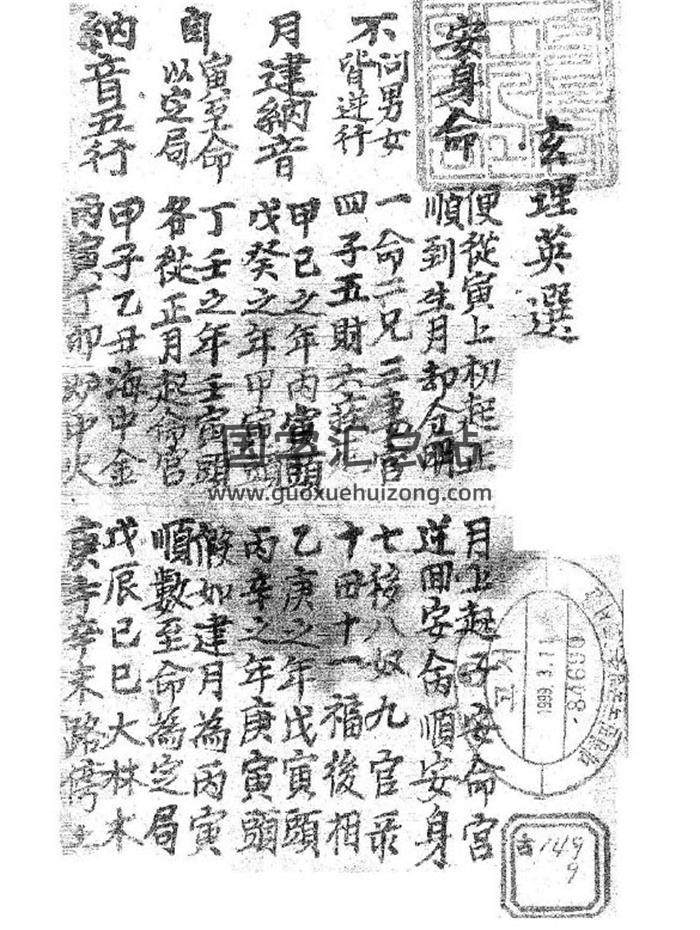 玄理英選
安身命
便從寅上初起正
月上起子安命宮
順到生月却
逆回安命順安身
不問男女皆逆行
一命二兄三妻宮
七移八奴九官录
四子五財六疾
十田十一福後相
月建納音
甲己之年丙寅頭
乙庚之年戊寅頭
戊癸之年甲寅頭
丙辛之年庚寅頭
自寅至命以定局
丁壬之年壬寅頭
假如建月為丙寅
各從正月起命宮
順數至命為定局
納音五行
甲子乙丑海中金
戊辰己巳大林木
丙寅丁卯炉中火
庚辛辛未路傍土
国学汇总站
www.guoxuehuizong.com
1999.3.11
84990
古149
9